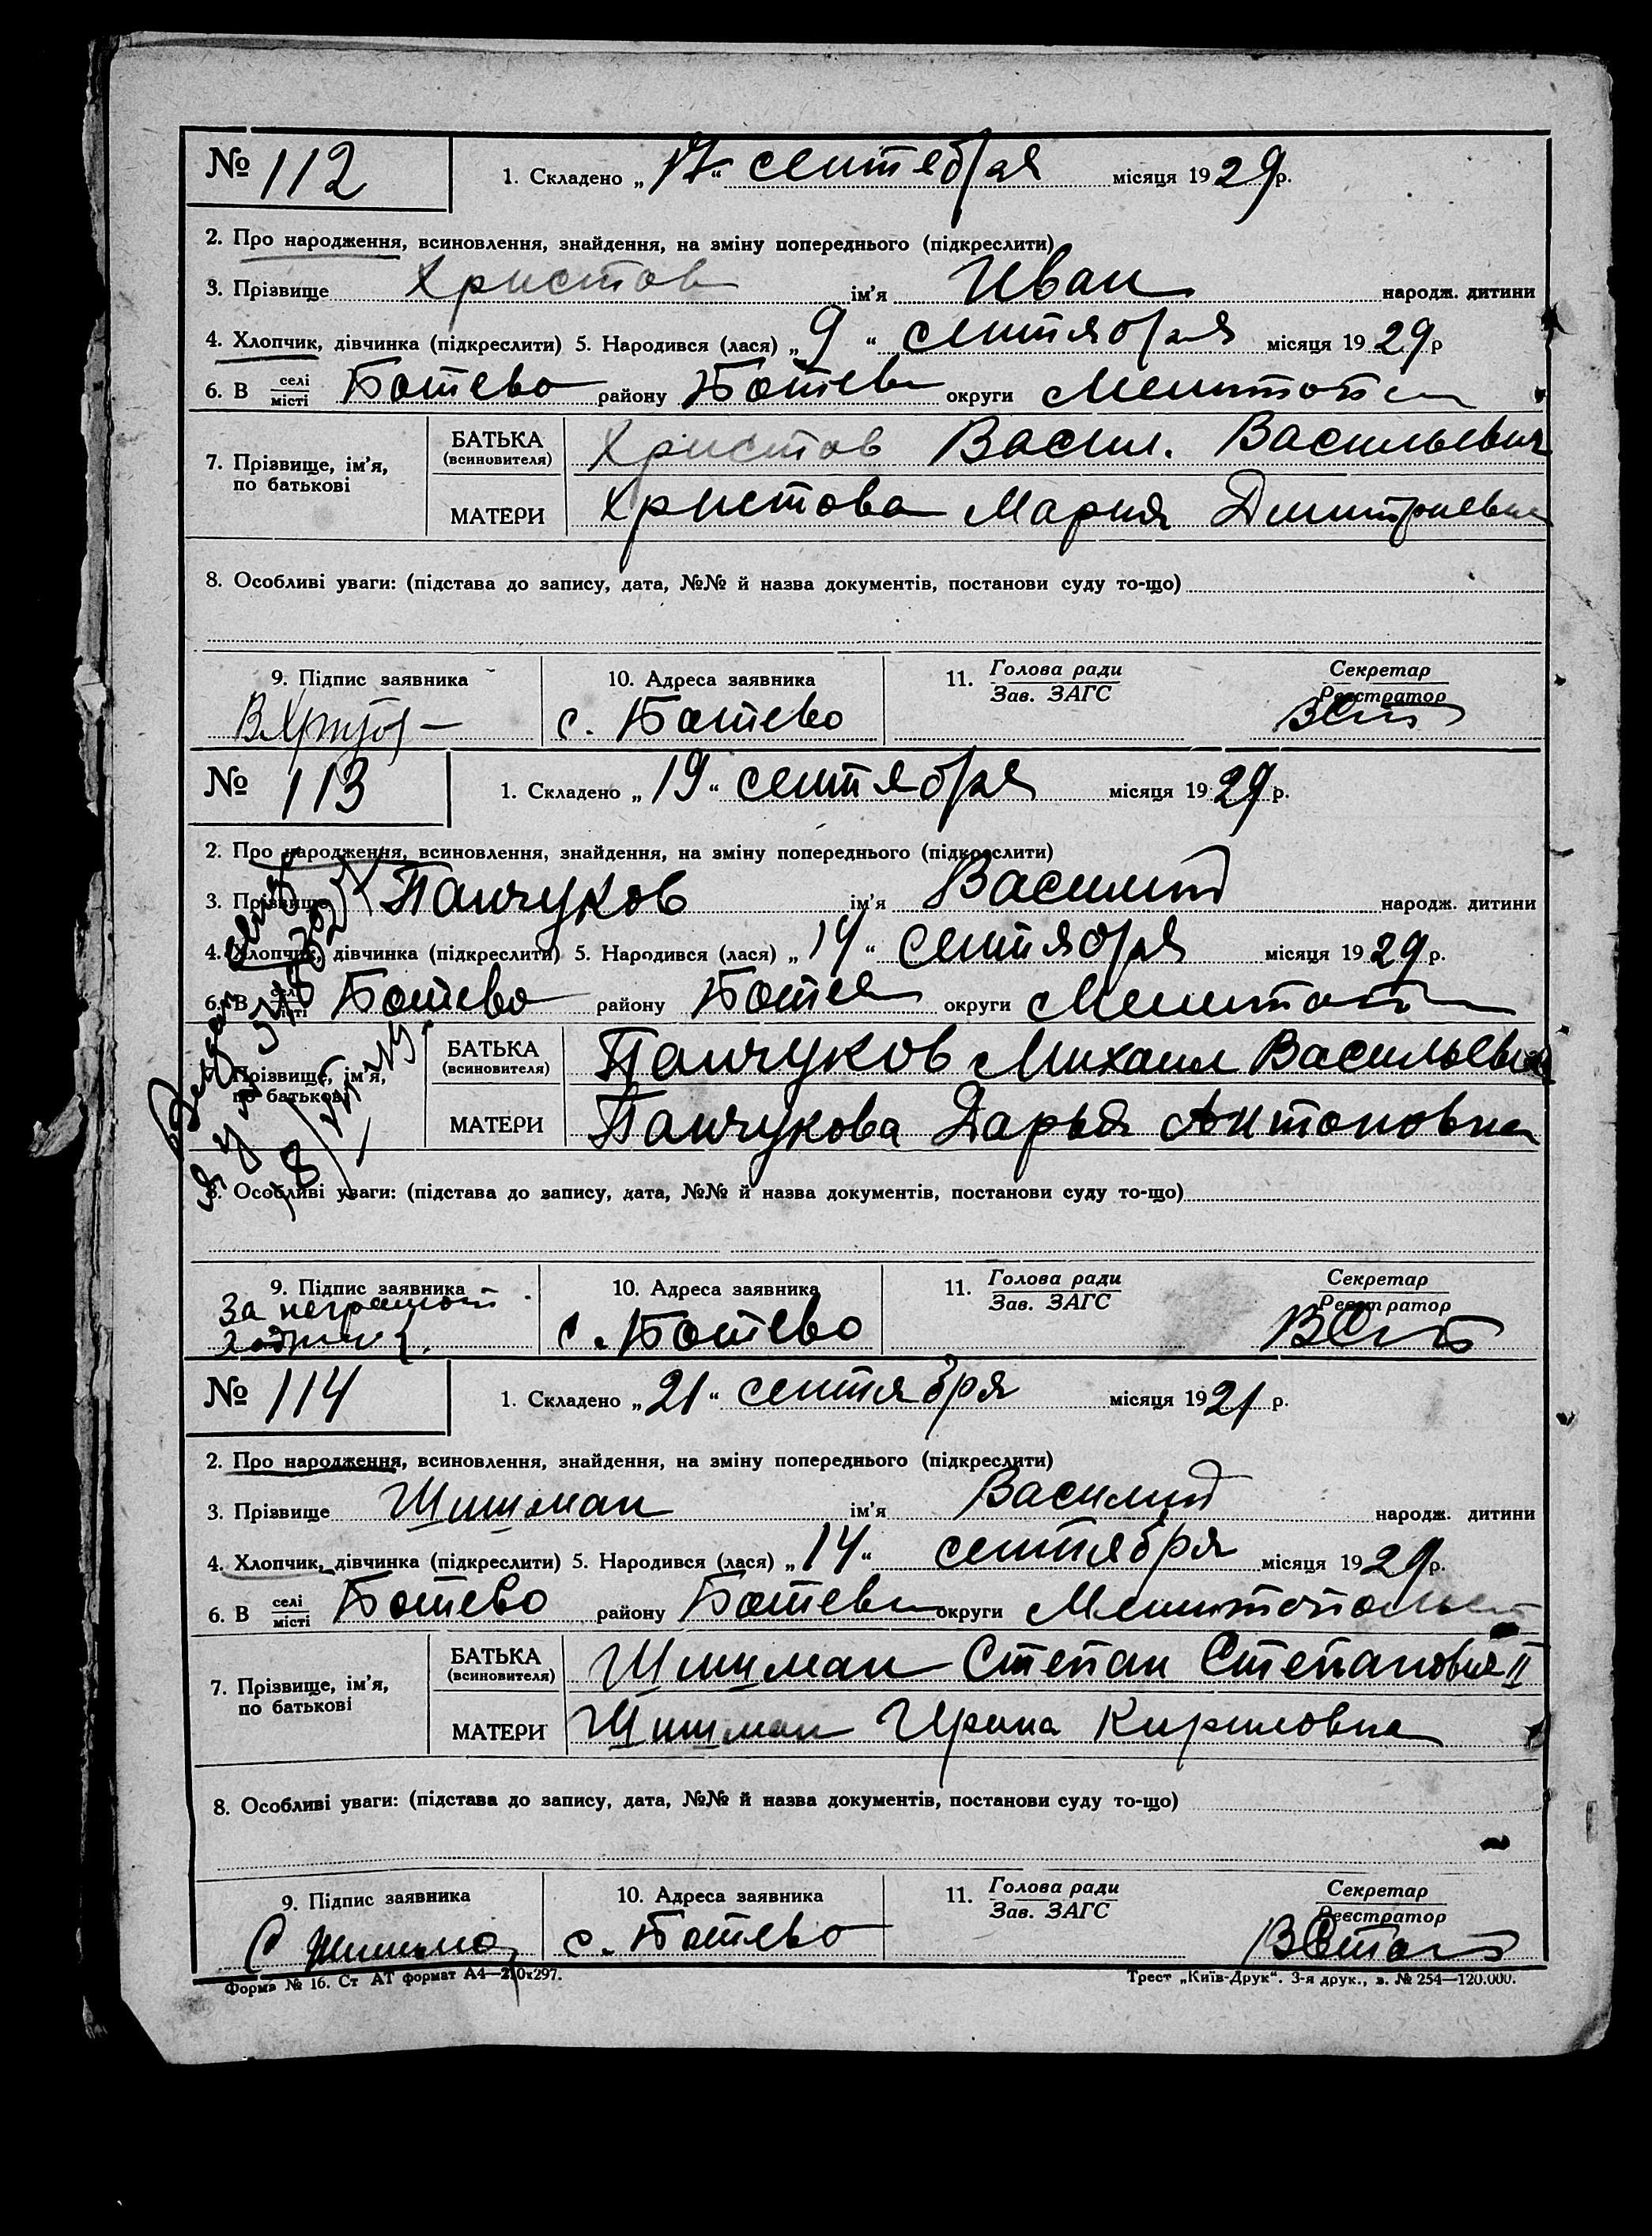 № 112 1. Складено „17“ сентября місяця 1929 р.
2. Про народження, всиновлення, знайдення, на зміну попереднього (підкреслити)
3. Прізвище Христов ім'я Иван народж. дитини
4. Хлопчик, дівчинка (підкреслити) 5. Народився (лася) „9“ сентября місяця 1929 р
6. В селі місті Ботево району Ботев округи
7. Прізвище, ім'я, по батькові
БАТЬКА (всиновителя) Христов Васил. Васильевич
МАТЕРИ Христова Мария Дмитриевна
8. Особливі уваги: (підстава до запису, дата, №№ й назва документів, постанови суду то-що)
9. Підпис заявника 10. Адреса заявника 11. Голова ради Зав. ЗАГС Секретар Реєстратор
с. Ботево
№ 113 1. Складено „19“ сентября місяця 1929 р.
2. Про народження, всиновлення, знайдення, на зміну попереднього (підкреслити)
3. Прізвище Панчуков ім'я Василий народж. дитини
4. Хлопчик, дівчинка (підкреслити) 5. Народився (лася) „14“ сентября місяця 1929 р.
6. В селі місті Ботево району округи
7. Прізвище, ім'я, по батькові
БАТЬКА (всиновителя) Панчуков Михаил Васильевич
МАТЕРИ Панчукова Дарья Антоновна
8. Особливі уваги: (підстава до запису, дата, №№ й назва документів, постанови суду то-що)
9. Підпис заявника 10. Адреса заявника 11. Голова ради Зав. ЗАГС Секретар Реєстратор
За неграмот
с. Ботево
№ 114 1. Складено „21“ сентября місяця 1921 р.
2. Про народження, всиновлення, знайдення, на зміну попереднього (підкреслити)
3. Прізвище Шишман ім'я Василий народж. дитини
4. Хлопчик, дівчинка (підкреслити) 5. Народився (лася) „14“ сентября місяця 1929 р.
6. В селі місті Ботево району Ботевк округи
7. Прізвище, ім'я, по батькові
БАТЬКА (всиновителя) Шишман Степан Степанович II
МАТЕРИ Шишман Ирина Кириловна
8. Особливі уваги: (підстава до запису, дата, №№ й назва документів, постанови суду то-що)
9. Підпис заявника 10. Адреса заявника 11. Голова ради Зав. ЗАГС Секретар Реєстратор
С Шишман с. Ботево
Форма № 16. Ст АТ формат А4—210х297. Трест „Київ-Друк“. 3-я друк., з. № 254—120.000.